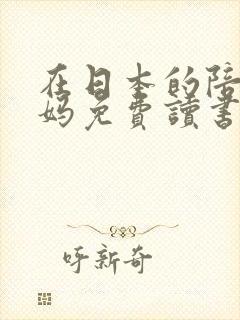 在日本的陪
妈免费讀書
呼新奇